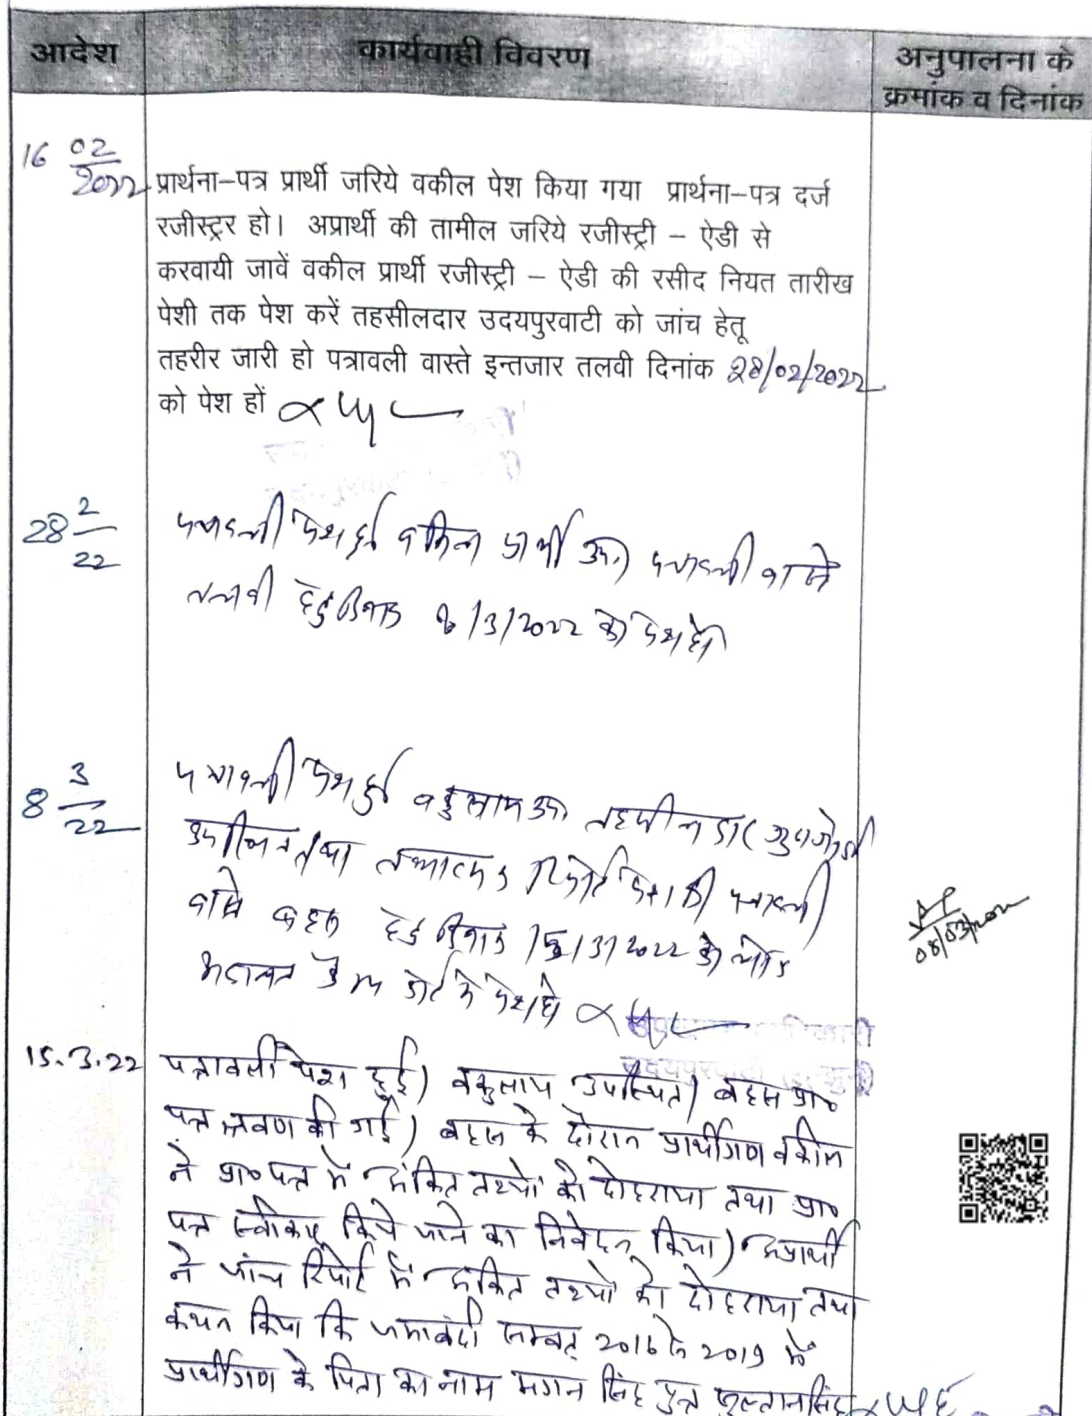 आदेश
कार्यवाही विवरण
अनुपालना के
क्रमांक व दिनांक
16 02/2022
प्रार्थना-पत्र प्रार्थी जरिये वकील पेश किया गया प्रार्थना-पत्र दर्ज
रजीस्ट्रर हो। अप्रार्थी की तामील जरिये रजीस्ट्री – ऐडी से
करवायी जावें वकील प्रार्थी रजीस्ट्री – ऐडी की रसीद नियत तारीख
पेशी तक पेश करें तहसीलदार उदयपुरवाटी को जांच हेतू
तहरीर जारी हो पत्रावली वास्ते इन्तजार तलवी दिनांक 28/02/2022
को पेश हों
28 2/22
पत्रावली पेश हुई वकिल प्रार्थी उप. पत्रावली वास्ते
तलवी हेतु दिनांक 8/3/2022 को पेश हो
8 3/22
पत्रावली पेश हुई वकुलाय उप. तहसीलदार
उपस्थित तथा रिपोर्ट पेश की पत्रावली
वास्ते बहस हेतु दिनांक 15/3/2022 को
कोर्ट में पेश हो
08/03/2022
15.3.22
पत्रावली पेश हुई। वकुलाय उपस्थित। बहस प्रा०
पत्र श्रवण की गई। बहस के दौरान प्रार्थीगण वकील
ने प्रा० पत्र में अंकित तथ्यों को दोहराया तथा प्रा०
पत्र स्वीकार किये जाने का निवेदन किया। अप्रार्थी
ने जांच रिपोर्ट में अंकित तथ्यों को दोहराया तथा
कथन किया कि जमाबंदी सम्वत् 2016 से 2019 में
प्रार्थीगण के पिता का नाम मगन सिंह पुत्र सुल्तानसिंह